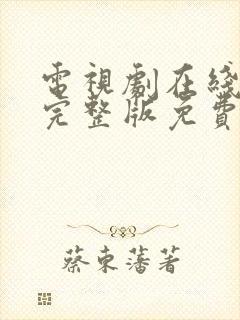 電視劇在綫
完整版免費
蔡東藩著